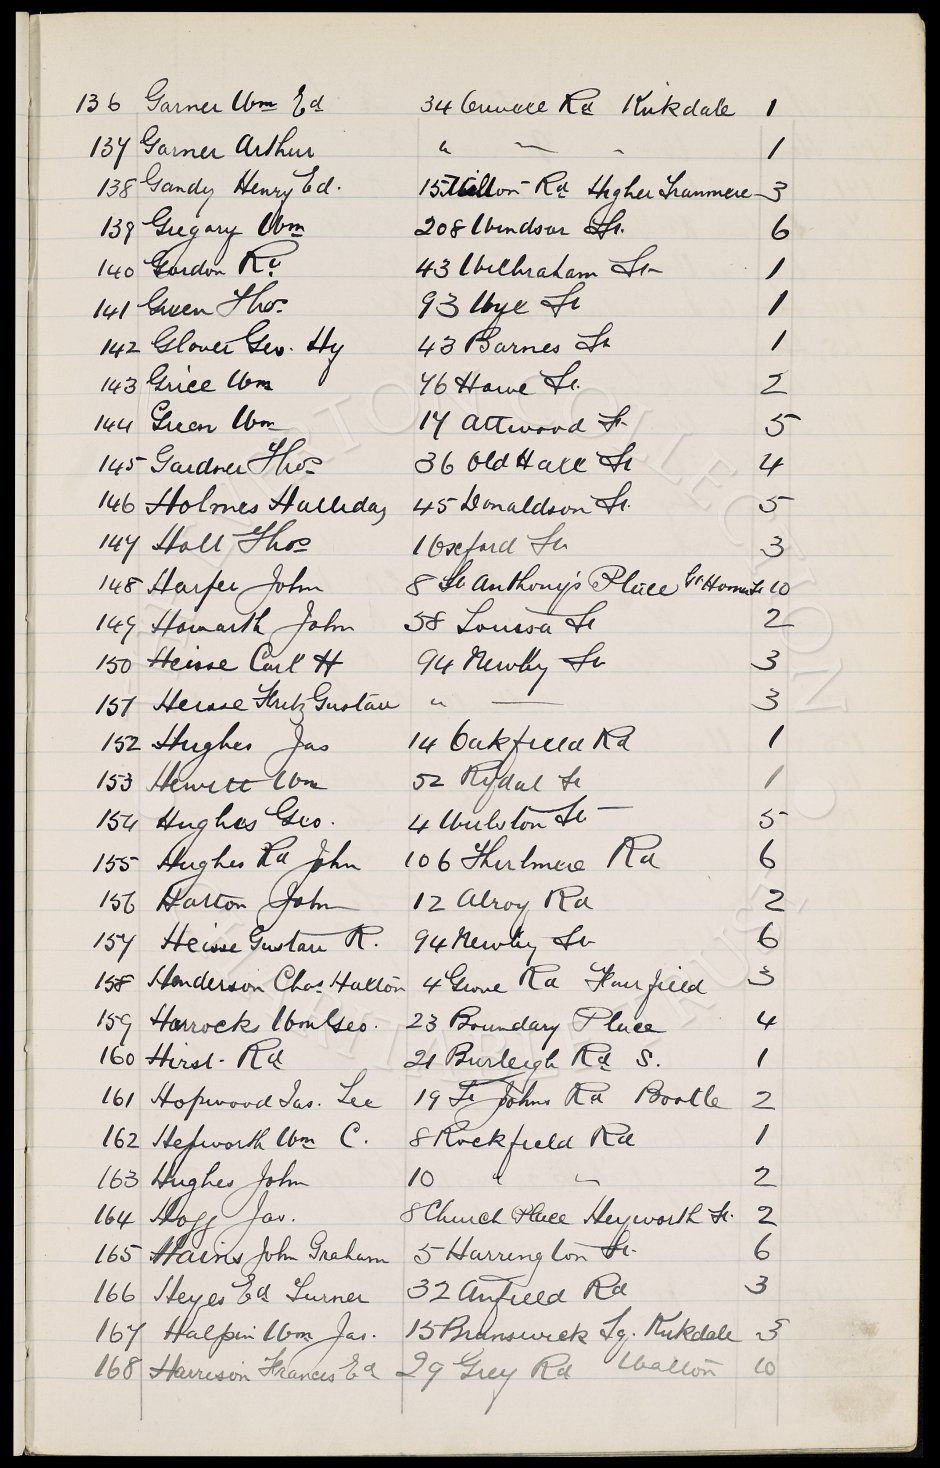 136 Garner Wm Ed 34 Orwell Rd Kirkdale 1
137 Garner Arthur " — " 1
138 Gandy Henry Ed. 15 Hilton Rd Higher Tranmere 3
139 Gregory Wm 208 Windsor St. 6
140 Gordon Rd 43 Wilbraham St 1
141 Green Thos 93 Wye St 1
142 Glover Geo. Hy 43 Barnes St 1
143 Grice Wm 76 Howe St. 2
144 Green Wm 17 Attwood St 5
145 Gardner Thos 36 Old Hall St 4
146 Holmes Halliday 45 Donaldson St. 5
147 Hall Thos 1 Oxford St 3
148 Harper John 8 St Anthony's Place Gt Homer St 10
149 Howarth John 58 Louisa St 2
150 Heisse Carl H 94 Newby St 3
151 Heisse Fritz Gustav " — 3
152 Hughes Jas 14 Oakfield Rd 1
153 Hewitt Wm 52 Rydal St 1
154 Hughes Geo. 4 St 5
155 Hughes Rd John 106 Thirlmere Rd 6
156 Harton John 12 Alroy Rd 2
157 Heisse Gustav R. 94 Newby St 6
158 Henderson Chas Hutton 4 Grove Rd Fairfield 3
159 Horrocks Wm Geo. 23 Boundary Place 4
160 Hirst Rd 21 Burleigh Rd S. 1
161 Hopwood Jas. Lee 19 St Johns Rd Bootle 2
162 Hepworth Wm C. 8 Rockfield Rd 1
163 Hughes John 10 " " 2
164 Hogg Jas. 8 Church Place Heyworth St. 2
165 Hains John Graham 5 Harrington St. 6
166 Heyes Ed Turner 32 Anfield Rd 3
167 Halpin Wm Jas. 15 Brunswick Sq. Kirkdale 3
168 Harrison Francis Ed 29 Grey Rd Walton 10